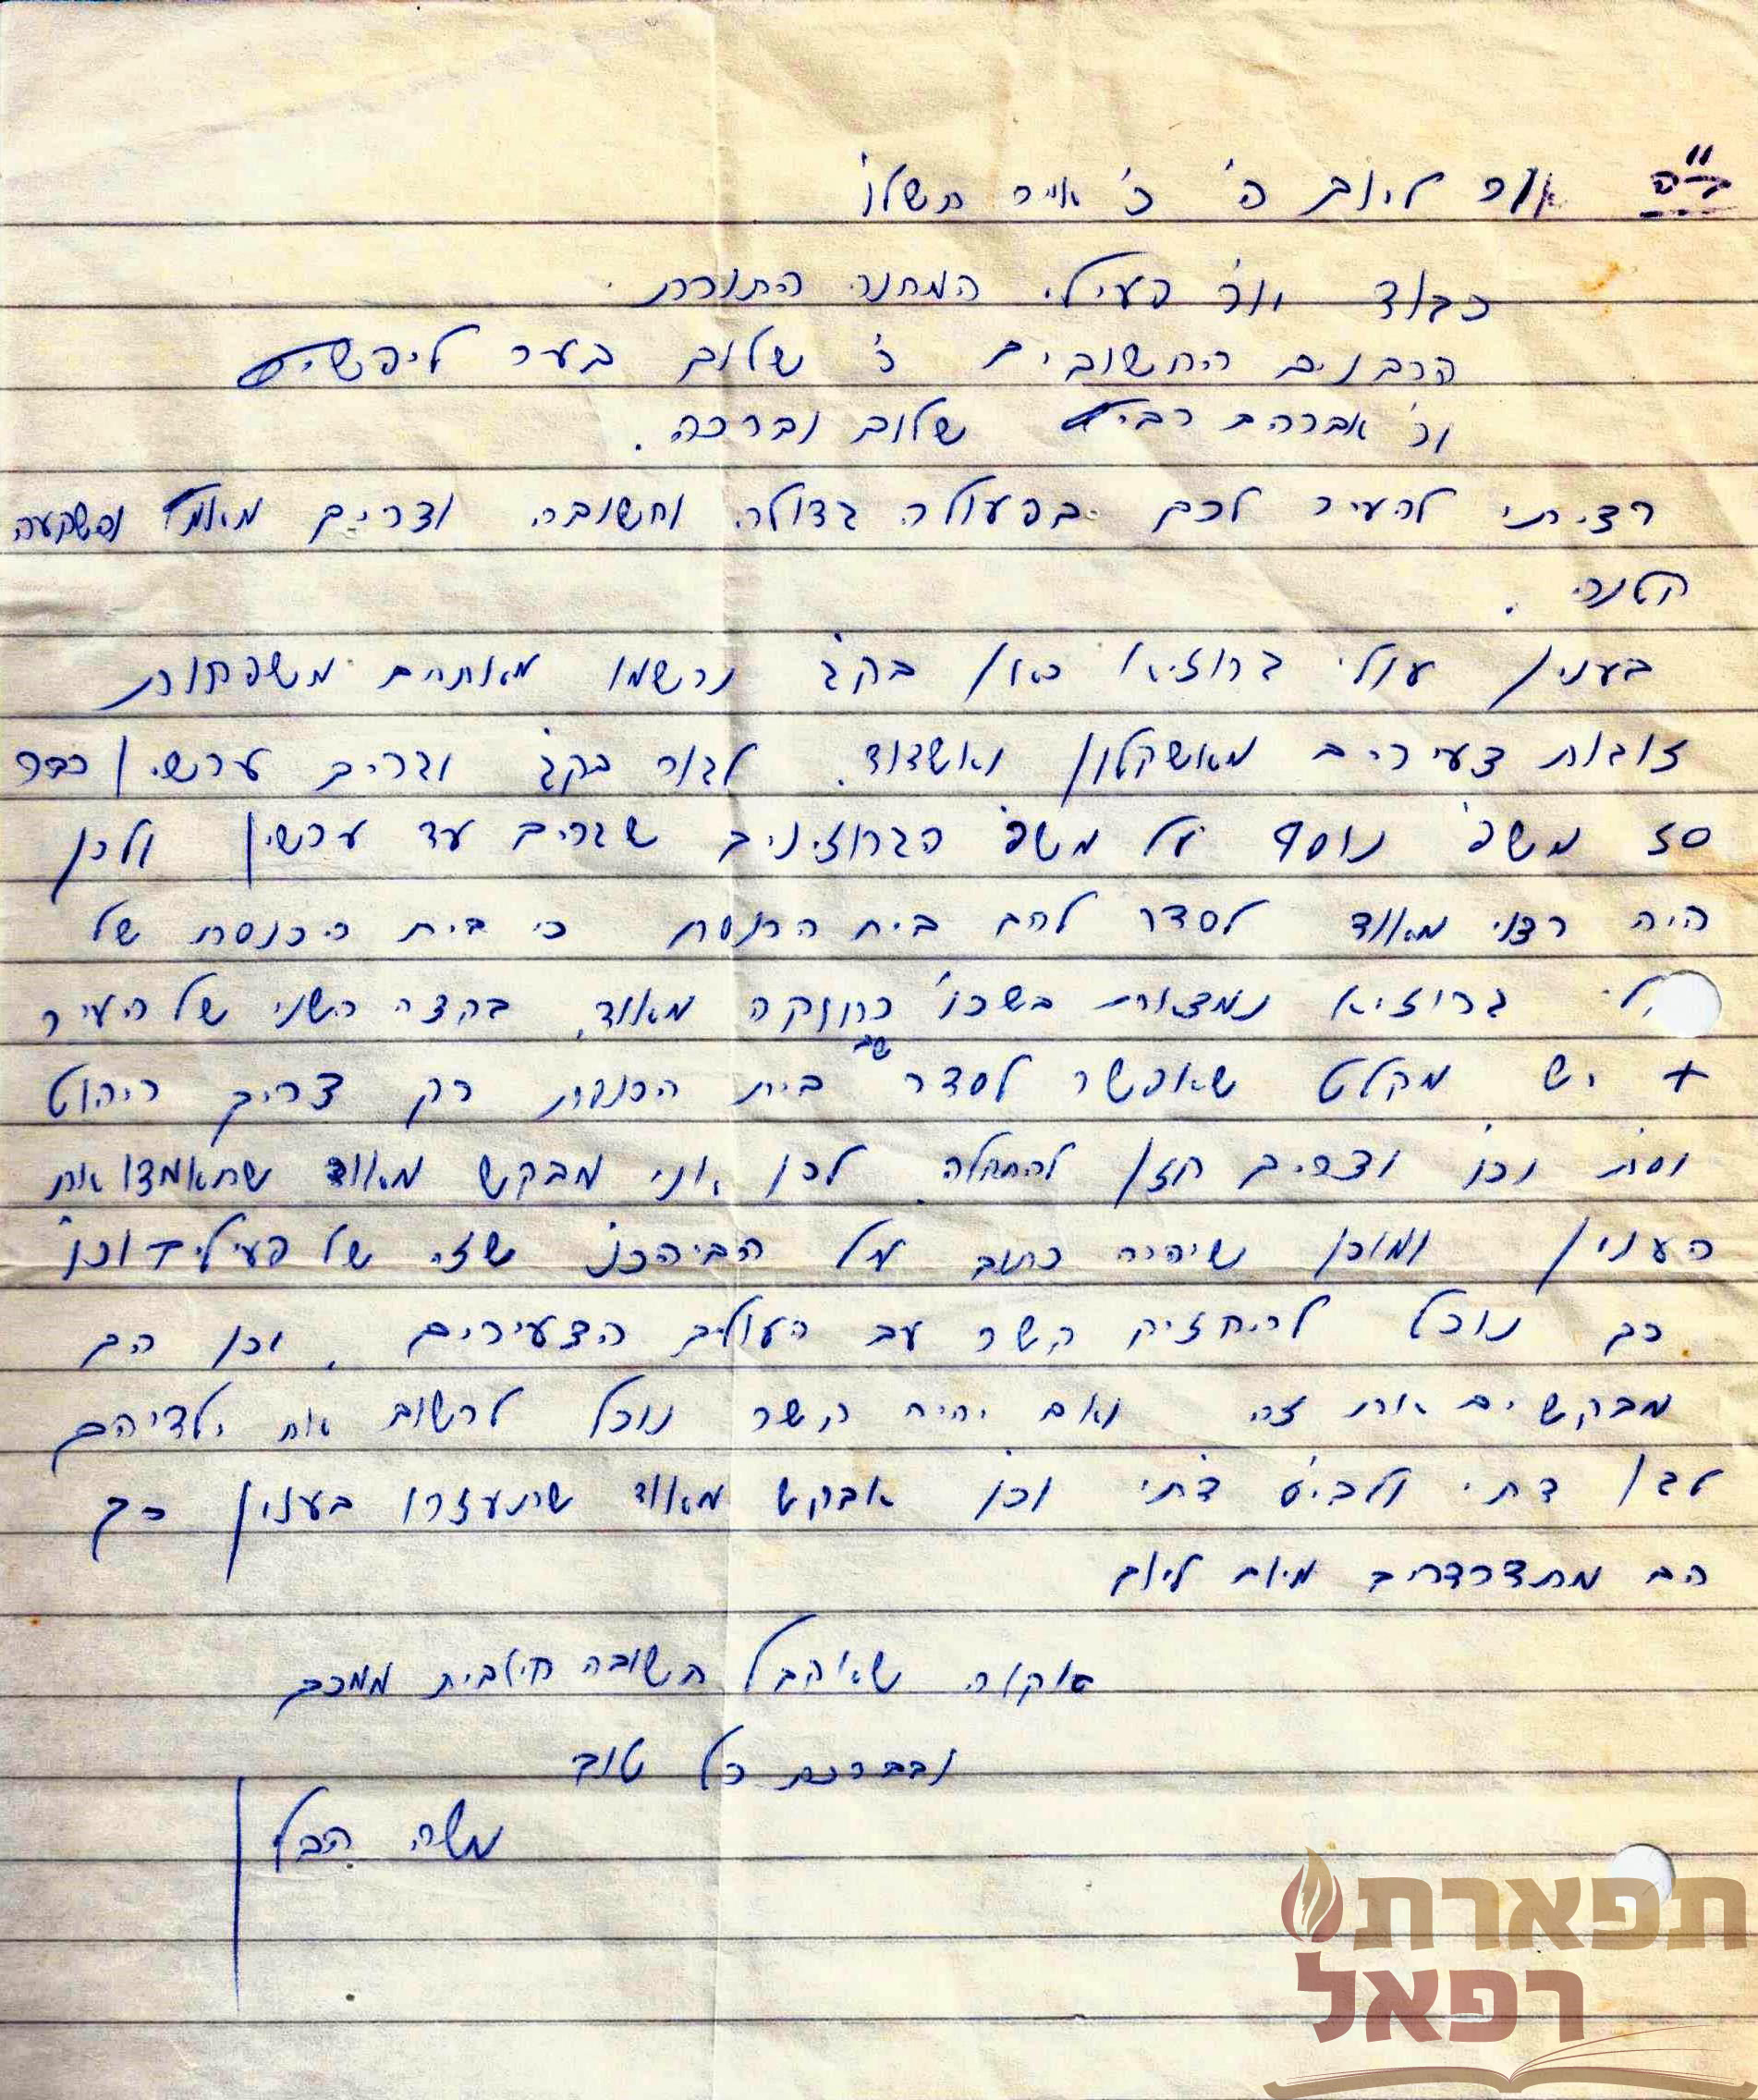 ב"ה אור ליום ה' כ' אייר תשל"ו
כבוד יו"ר פעילי המחנה התורתי
הרבנים החשובים ר' שלום בער ליפשיץ
ור' אברהם רביץ שלום וברכה.
רציתי להעיר לכם בפעולה גדולה וחשובה וצריכים מאמץ והשקעה
קטנה.
בענין עולי גרוזיא כאן בק"ג נרשמו מאותהם משפחות
זוגות צעירים מאשקלון ואשדוד. לגור בק"ג וגרים עכשיו כבר
50 משפ' נוסף על משפ' הגרוזינים שגרים עד עכשיו ולכן
היה רצוי מאוד לסדר להם בית הכנסת כי בית הכנסת של
גרוזיא נמצאת בשכו' רחוקה מאוד, בקצה השני של העיר
+ יש מקלט שאפשר לסדר שם בית הכנסת רק צריך ריהוט
וס"ת וכו' וצריכים חזן להתחלה. לכן אני מבקש מאוד שתאמצו את
הענין ומוכן שיהיה כתוב על הביהכנ' שזה של פעילים וכו'
כך נוכל להחזיק קשר עם העולים הצעירים. וכן הם
מבקשים את זה ואם יהיה קשר נוכל לרשום את ילדיהם
לגן דתי ולבי"ס דתי וכו' אבקש מאוד שתעזרו בענין כך
הם מתדרדרים מיום ליום
אקוה שאקבל תשובה חיובית ממכם
ובברכת כל טוב
משה
תפארת
רפאל